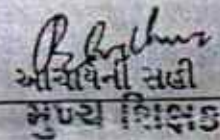 આચાર્યની સહી
મુખ્ય શિક્ષક